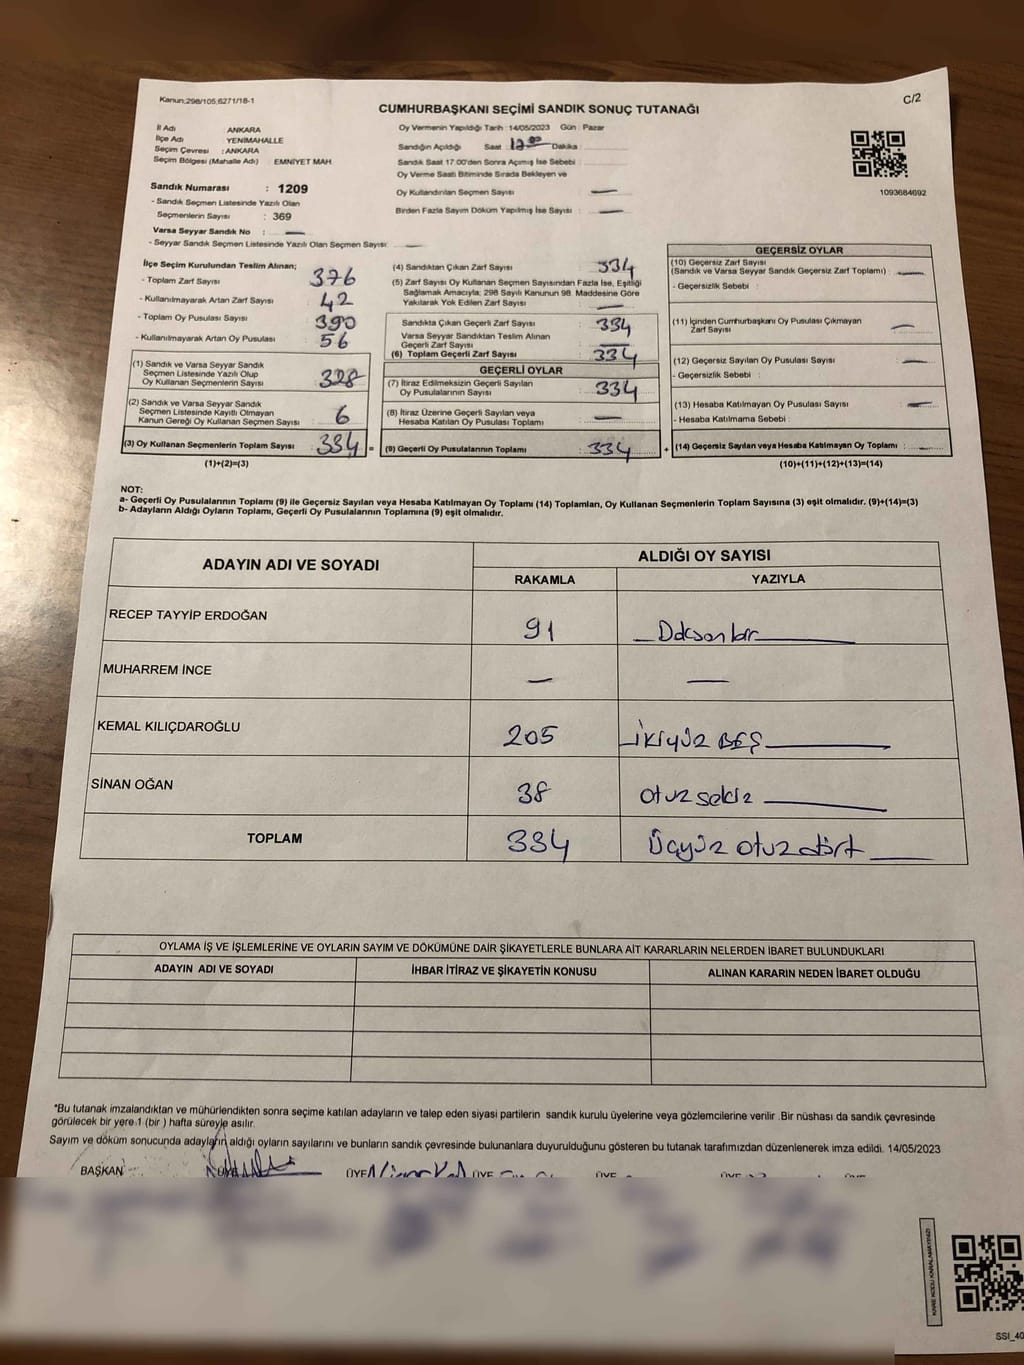 Kanun:298/105,6271/18-1
C/2
CUMHURBAŞKANI SEÇİMİ SANDIK SONUÇ TUTANAĞI
İl Adı ANKARA
İlçe Adı YENİMAHALLE
Seçim Çevresi : ANKARA
Seçim Bölgesi (Mahalle Adı) : EMNİYET MAH.
Oy Vermenin Yapıldığı Tarih : 14/05/2023 Gün : Pazar
Sandığın Açıldığı Saat Dakika
Sandık Saat 17.00'den Sonra Açımış İse Sebebi :
Oy Verme Saati Bitiminde Sırada Bekleyen ve
Oy Kullandırılan Seçmen Sayısı : —
Birden Fazla Sayım Döküm Yapılmış İse Sayısı : —
1093684692
Sandık Numarası : 1209
- Sandık Seçmen Listesinde Yazılı Olan
Seçmenlerin Sayısı : 369
Varsa Seyyar Sandık No : —
- Seyyar Sandık Seçmen Listesinde Yazılı Olan Seçmen Sayısı: —
İlçe Seçim Kurulundan Teslim Alınan;
- Toplam Zarf Sayısı 376
- Kullanılmayarak Artan Zarf Sayısı : 42
- Toplam Oy Pusulası Sayısı : 390
- Kullanılmayarak Artan Oy Pusulası : 56
(1) Sandık ve Varsa Seyyar Sandık
Seçmen Listesinde Yazılı Olup
Oy Kullanan Seçmenlerin Sayısı : 328
(2) Sandık ve Varsa Seyyar Sandık
Seçmen Listesinde Kayıtlı Olmayan
Kanun Gereği Oy Kullanan Seçmen Sayısı : 6
(3) Oy Kullanan Seçmenlerin Toplam Sayısı : 334 =
(1)+(2)=(3)
(4) Sandıktan Çıkan Zarf Sayısı : 334
(5) Zarf Sayısı Oy Kullanan Seçmen Sayısından Fazla İse, Eşitliği
Sağlamak Amacıyla; 298 Sayılı Kanunun 98. Maddesine Göre
Yakılarak Yok Edilen Zarf Sayısı : —
Sandıkta Çıkan Geçerli Zarf Sayısı : 334
Varsa Seyyar Sandıktan Teslim Alınan
Geçerli Zarf Sayısı : —
(6) Toplam Geçerli Zarf Sayısı : 334
GEÇERLİ OYLAR
(7) İtiraz Edilmeksizin Geçerli Sayılan
Oy Pusulalarının Sayısı : 334
(8) İtiraz Üzerine Geçerli Sayılan veya
Hesaba Katılan Oy Pusulası Toplamı : —
(9) Geçerli Oy Pusulalarının Toplamı : 334 +
GEÇERSİZ OYLAR
(10) Geçersiz Zarf Sayısı
(Sandık ve Varsa Seyyar Sandık Geçersiz Zarf Toplamı) : —
- Geçersizlik Sebebi :
(11) İçinden Cumhurbaşkanı Oy Pusulası Çıkmayan
Zarf Sayısı : —
(12) Geçersiz Sayılan Oy Pusulası Sayısı : —
- Geçersizlik Sebebi :
(13) Hesaba Katılmayan Oy Pusulası Sayısı : —
- Hesaba Katılmama Sebebi :
(14) Geçersiz Sayılan veya Hesaba Katılmayan Oy Toplamı : —
(10)+(11)+(12)+(13)=(14)
NOT:
a- Geçerli Oy Pusulalarının Toplamı (9) ile Geçersiz Sayılan veya Hesaba Katılmayan Oy Toplamı (14) Toplamları, Oy Kullanan Seçmenlerin Toplam Sayısına (3) eşit olmalıdır. (9)+(14)=(3)
b- Adayların Aldığı Oyların Toplamı, Geçerli Oy Pusulalarının Toplamına (9) eşit olmalıdır.
ADAYIN ADI VE SOYADI
ALDIĞI OY SAYISI
RAKAMLA YAZIYLA
RECEP TAYYİP ERDOĞAN 91 Doksan bir
MUHARREM İNCE — —
KEMAL KILIÇDAROĞLU 205 İKİYÜZ BEŞ
SİNAN OĞAN 38 otuz sekiz
TOPLAM 334 Üçyüz otuz dört
OYLAMA İŞ VE İŞLEMLERİNE VE OYLARIN SAYIM VE DÖKÜMÜNE DAİR ŞİKAYETLERLE BUNLARA AİT KARARLARIN NELERDEN İBARET BULUNDUKLARI
ADAYIN ADI VE SOYADI İHBAR İTİRAZ VE ŞİKAYETİN KONUSU ALINAN KARARIN NEDEN İBARET OLDUĞU
*Bu tutanak imzalandıktan ve mühürlendikten sonra seçime katılan adayların ve talep eden siyasi partilerin sandık kurulu üyelerine veya gözlemcilerine verilir .Bir nüshası da sandık çevresinde
görülecek bir yere 1 (bir ) hafta süreyle asılır.
Sayım ve döküm sonucunda adayların aldığı oyların sayılarını ve bunların sandık çevresinde bulunanlara duyurulduğunu gösteren bu tutanak tarafımızdan düzenlenerek imza edildi. 14/05/2023
BAŞKAN ÜYE ÜYE ÜYE ÜYE ÜYE
KARE KODU KARALAMAYINIZ!
SSI_40